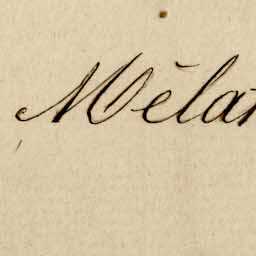 Mĕlan